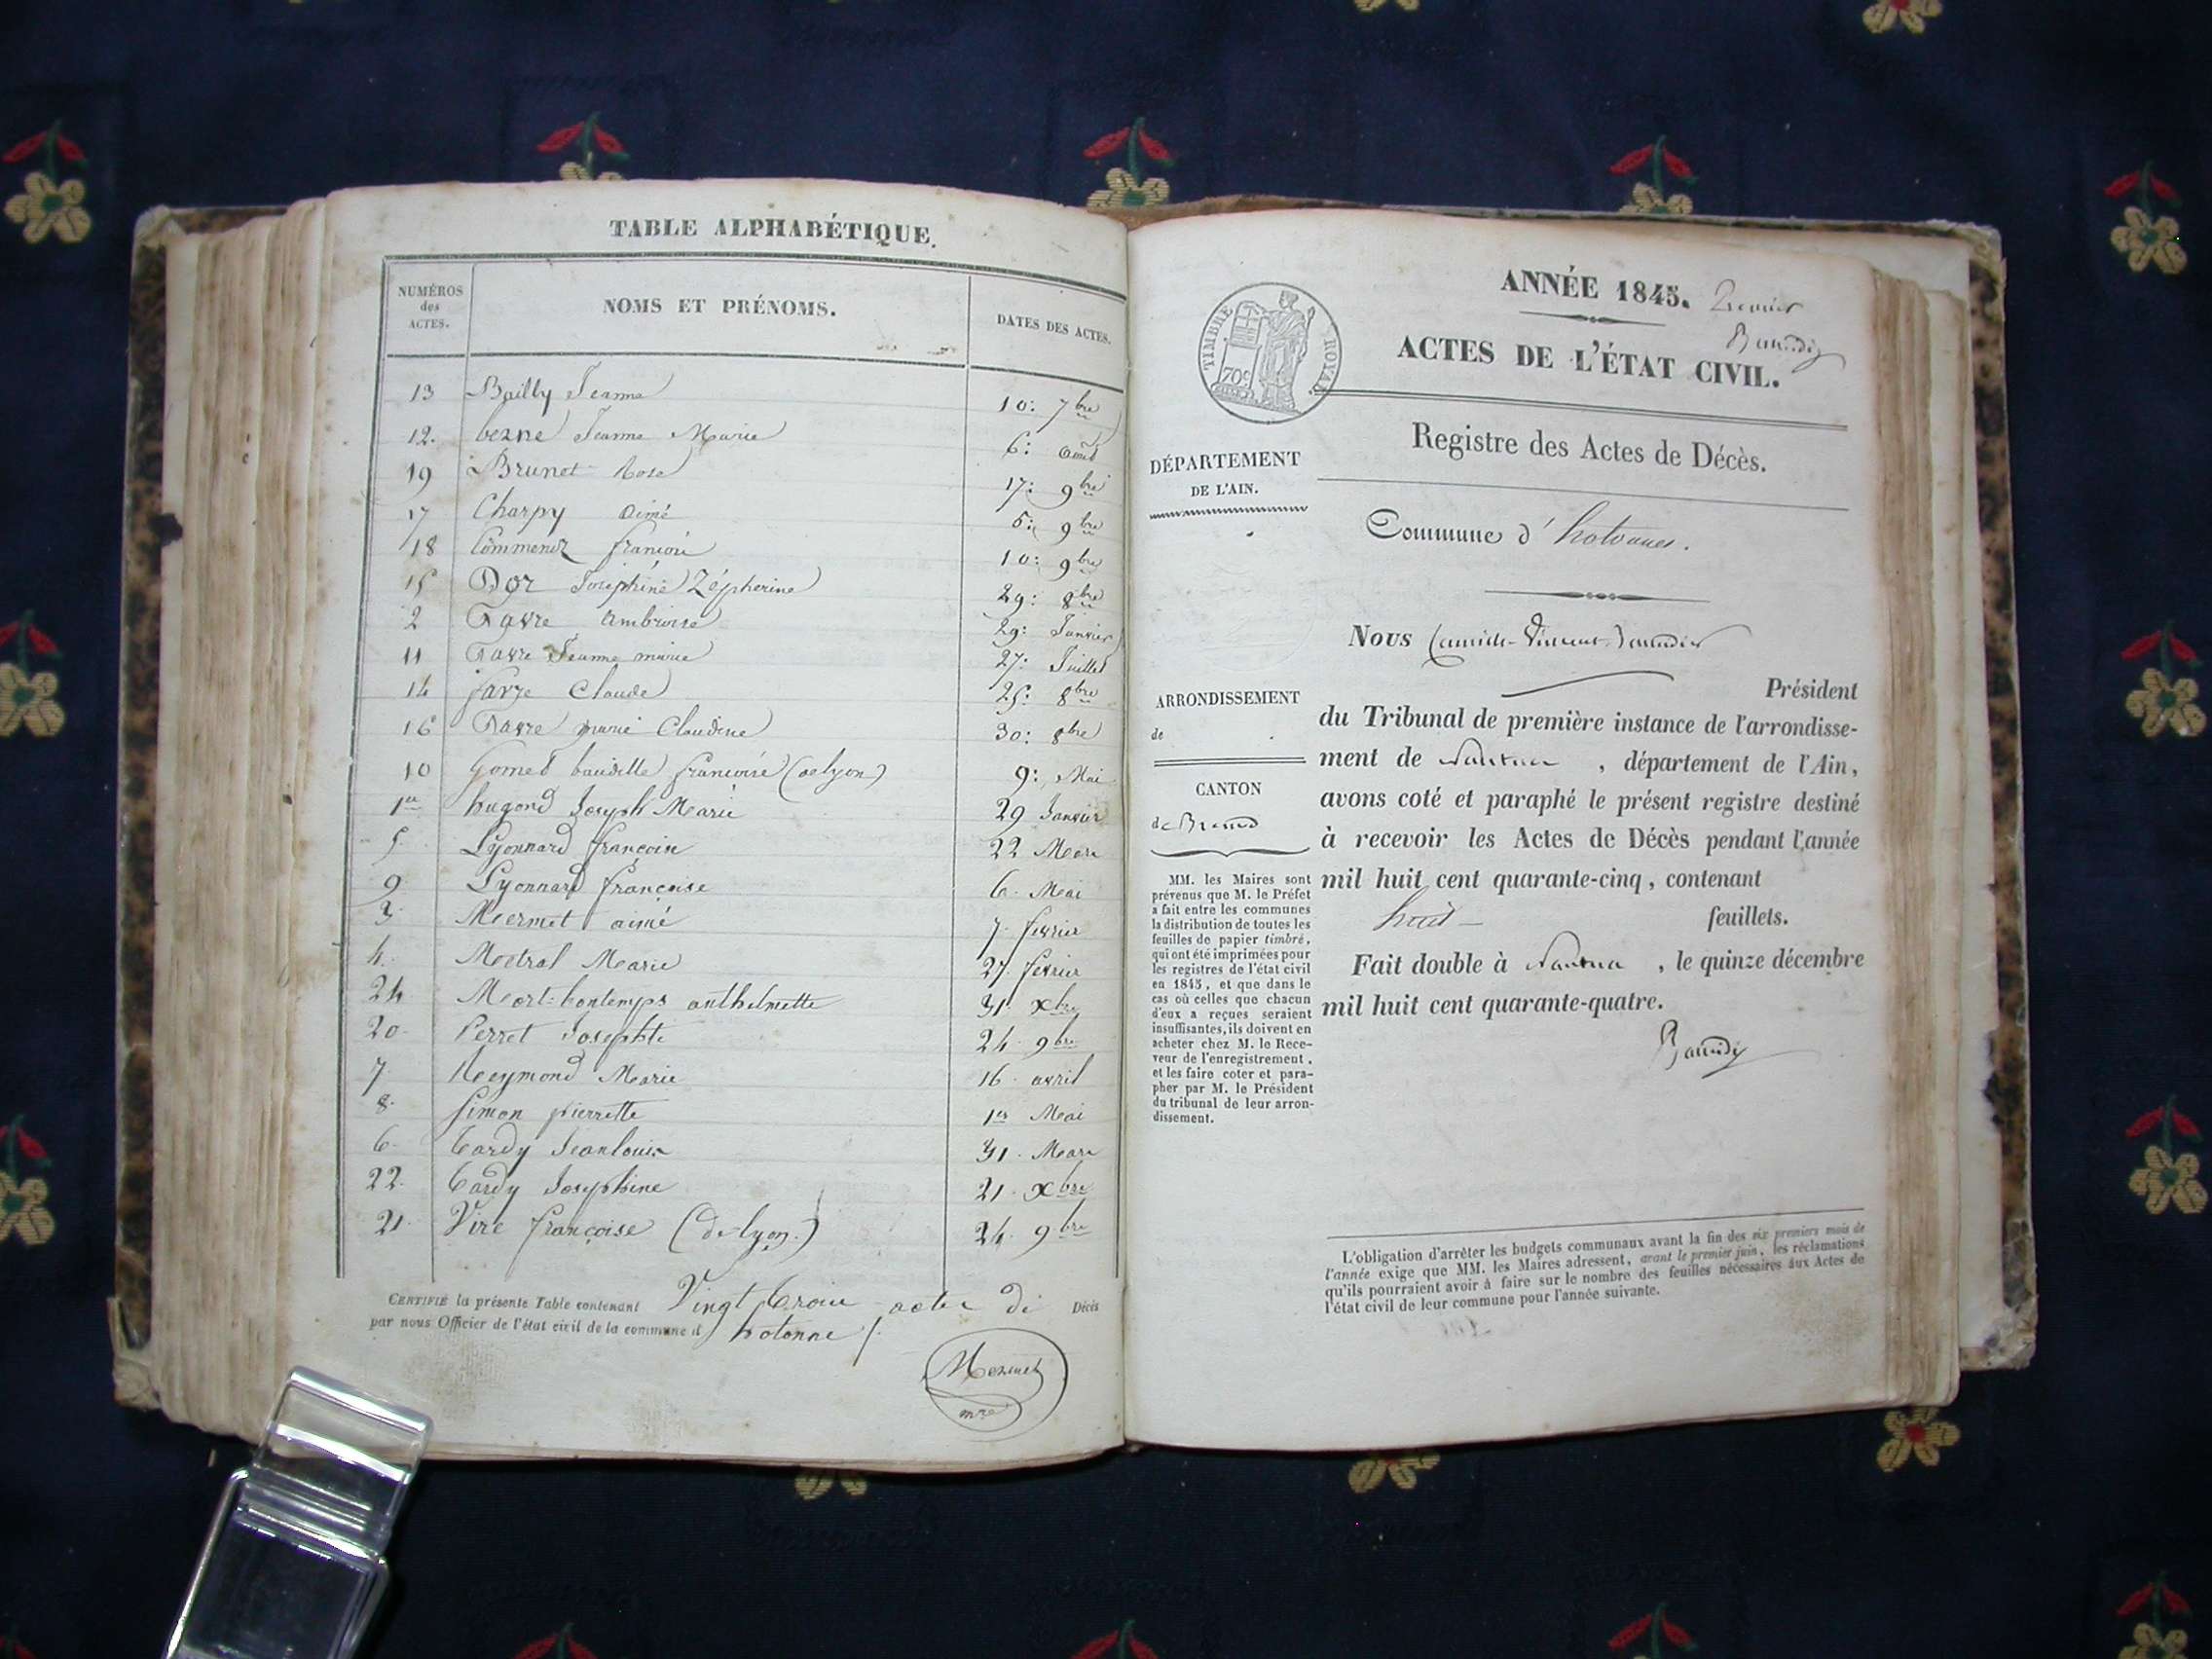 TABLE ALPHABÉTIQUE.
NUMÉROS des ACTES.
NOMS ET PRÉNOMS.
DATES DES ACTES.
13 Bailly Jeanne 10: 7bre
12. Jeanne Marie 6: aout
19 Brunet Rose 17: 9bre
17 Charpy aimé 5: 9bre
18 françois 10: 9bre
15 Dor Joséphine Zépherine 29: 8bre
2 Favre ambroise 29: Janvier
11 Favre Jeanne marie 27: Juillet
14 favre Claude 25: 8bre
16 Favre marie Claudine 30: 8bre
10 françoise (de lyon) 9: Mai
1er hugond Joseph Marie 29 Janvier
5 Lyonnard françois 22 Mars
9 Lyonnard françoise 6 Mai
3 Mermet aimé 7 fevrier
4. Mestral Marie 27 fevrier
24 Mort-bontemps anthelmette 31 Xbre
20 Perret Josephte 24 9bre
7 Reymond Marie 16 avril
8 Simon pierrette 1er Mai
6 Tardy Jeanlouis 31 Mars
22 Tardy Josephine 21 Xbre
21 Vire françoise (de lyon) 24 9bre
CERTIFIÉ la présente Table contenant Vingt trois actes de Décès
par nous Officier de l'état civil de la commune d'hotonne
Mermet
mre
ANNÉE 1845. Premier
TIMBRE ROYAL
70c
ACTES DE L'ÉTAT CIVIL.
Registre des Actes de Décès.
DÉPARTEMENT
DE L'AIN.
Commune d'hotonnes.
Nous
Président
ARRONDISSEMENT
de
du Tribunal de première instance de l'arrondisse-
ment de Nantua, département de l'Ain,
CANTON
de Brenod
avons coté et paraphé le présent registre destiné
à recevoir les Actes de Décès pendant l'année
mil huit cent quarante-cinq, contenant
huit feuillets.
Fait double à Nantua, le quinze décembre
mil huit cent quarante-quatre.
MM. les Maires sont
prévenus que M. le Préfet
a fait entre les communes
la distribution de toutes les
feuilles de papier timbré,
qui ont été imprimées pour
les registres de l'état civil
en 1845, et que dans le
cas où celles que chacun
d'eux a reçues seraient
insuffisantes, ils doivent en
acheter chez M. le Rece-
veur de l'enregistrement,
et les faire coter et para-
pher par M. le Président
du tribunal de leur arron-
dissement.
L'obligation d'arrêter les budgets communaux avant la fin des six premiers mois de
l'année exige que MM. les Maires adressent, avant le premier juin, les réclamations
qu'ils pourraient avoir à faire sur le nombre des feuilles nécessaires aux Actes de
l'état civil de leur commune pour l'année suivante.